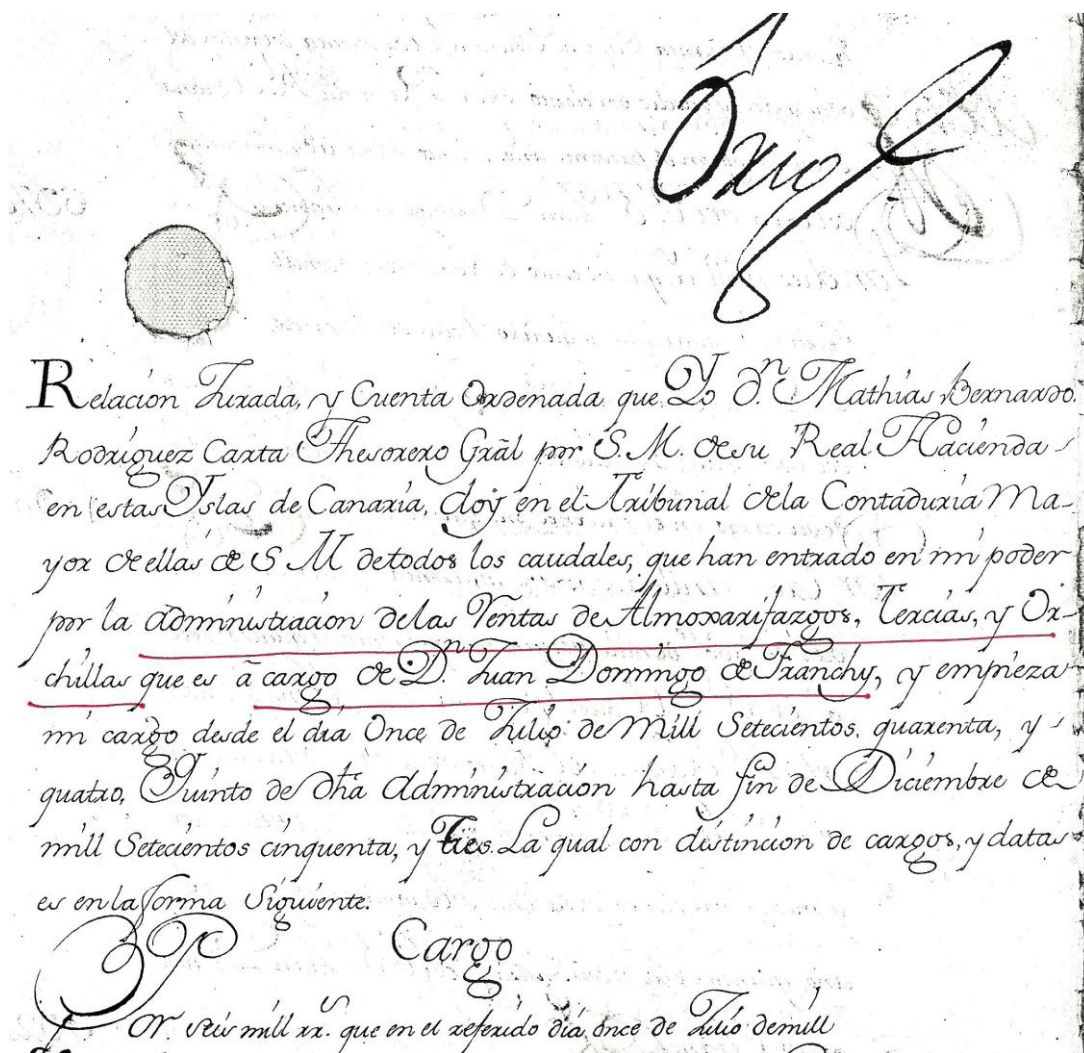 Relacion Jurada, y Cuenta Ordenada que Yo Dn. Mathias Bernardo
Rodriguez Carta Thesorero Grãl por S. M. de su Real Hacienda
en estas Yslas de Canaria, doy en el Tribunal de la Contaduria Ma-
yor de ellas de S M de todos los caudales, que han entrado en mi poder
por la administracion de las Rentas de Almoxarifazgos, Tercias, y Or-
chillas que es â cargo de Dn. Juan Domingo de Franchy, y empieza
mi cargo desde el dia Once de Julio de Mill Setecientos quarenta, y
quatro, Quinto de dha Administracion hasta fin de Diciembre de
mill Setecientos cinquenta, y tres. La qual con distincion de cargos, y datas
es en la forma Siguiente.
Cargo
Por seis mill rr. que en el referido dia once de Julio de mill